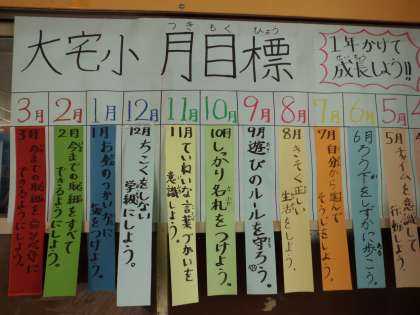 つきもくひょう
大宅小 月目標
1年かけて
成長しよう!!
5月
6月
7月
8月
9月
10月
11月
12月
1月
2月
3月
6月
ろう下をしずかに歩こう。
7月 自分から進んで
そうじをしよう。
8月 きそく正しい
生活をしよう。
9月 遊びのルールを守ろう。
10月 しっかり名札をつけよう。
11月 ていねいな言葉づかいを
意識しよう。
12月 ちこくをしない
学級にしよう。
1月
2月 今までの取組をすべて
できるようにしよう。
3月
できるようにしよう。